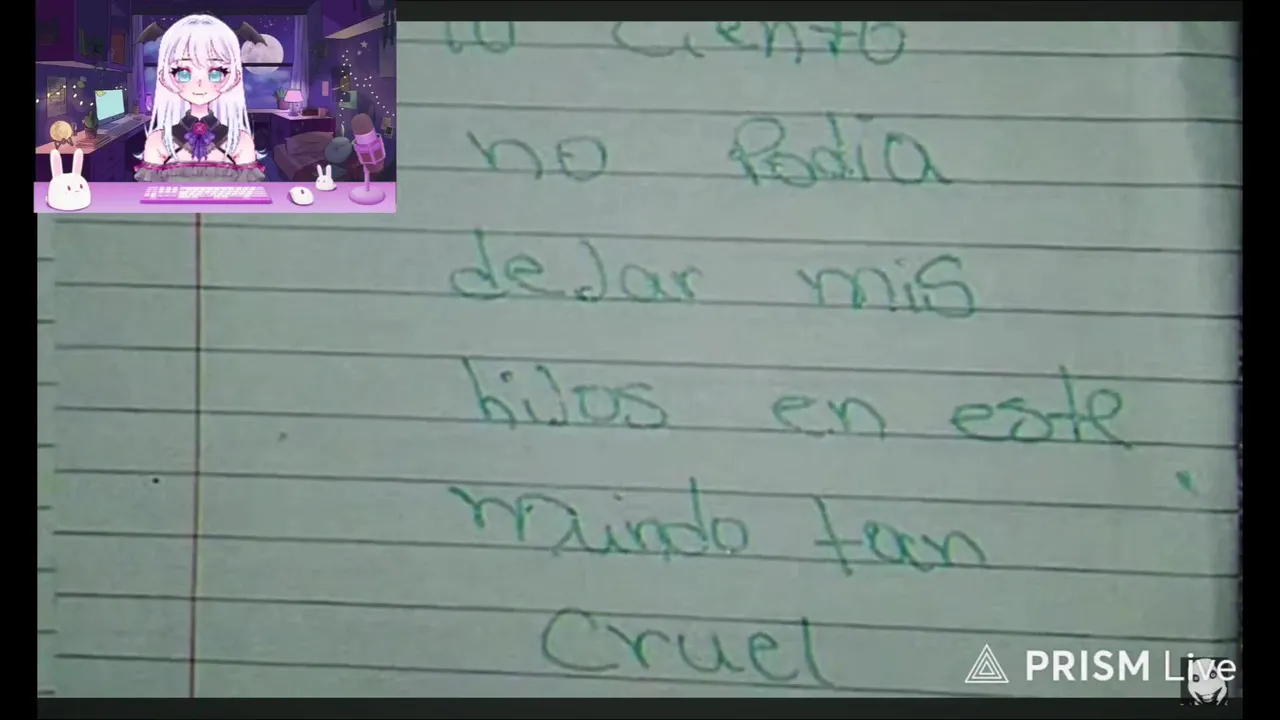 lo ciento
no Podia
deJar mis
hiJos en este
mundo tan
Cruel
PRISM Live